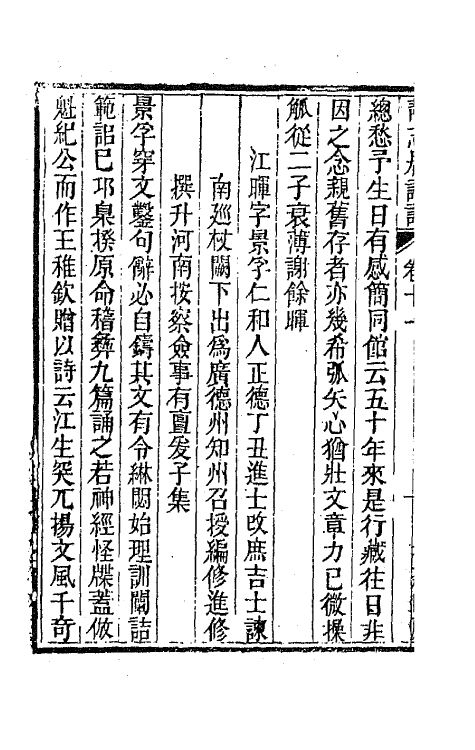 卷十一
總愁予生日有感簡同館云五十年來是行藏往日非
因之念親舊存者亦幾希弧矢心猶壯文章力已微操
觚從二子衰薄謝餘暉
江暉字景孚仁和人正德丁丑進士改庶吉士諫
南廵杖闕下出爲廣德州知州召授編修進修
撰升河南按察僉事有亶爰子集
景孚穿文鑿句辭必自鑄其文有令綝閟始理訓闡詰
範詔巳邛臬揆原命稽彝九篇誦之若神經怪牒蓋倣
魁紀公而作王稚欽贈以詩云江生突兀揚文風千奇